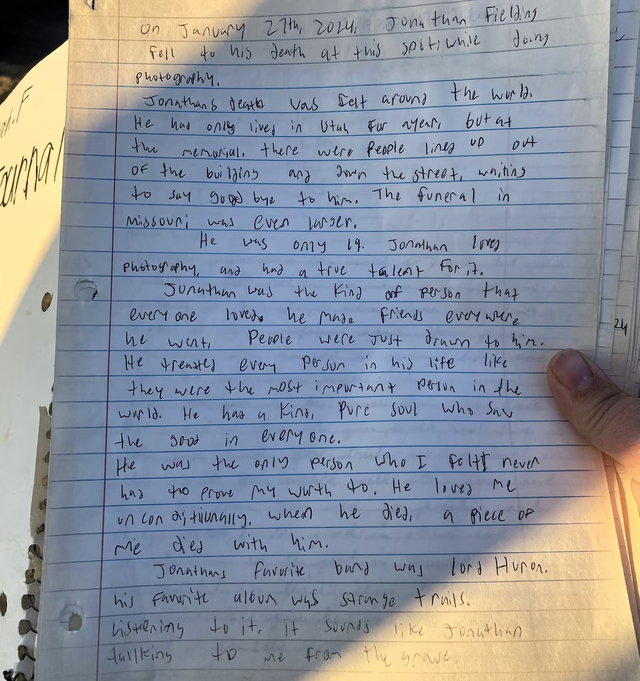 On January 27th, 2024, Jonathan Fielding
fell to his death at this spot while doing
photography.
Jonathans death was felt around the world.
He had only lived in Utah for a year, but at
the memorial, there were people lined up out
of the building and down the street, waiting
to say good bye to him. The funeral in
missouri was even larger.
He was only 19. Jonathan loved
photography, and had a true talent for it.
Jonathan was the kind of person that
every one loved. he made friends everywere
he went. People were just drawn to him.
He treated every person in his life like
they were the most important person in the
world. He had a kind, pure soul who saw
the good in every one.
He was the only person who I felt I never
had to prove my worth to. He loved me
unconditionally. when he died, a piece of
me died with him.
Jonathans favorite band was lord Huron.
his favorite album was strange trails.
Listening to it, it sounds like Jonathan
tallking to me from the grave.
24